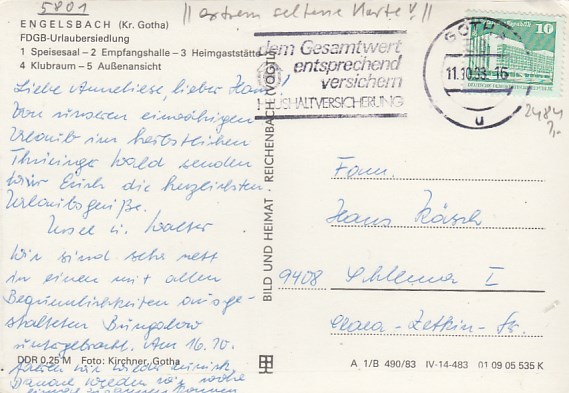 5801
|| extrem seltene Karte! ||
ENGELSBACH (Kr. Gotha)
FDGB-Urlaubersiedlung
1 Speisesaal – 2 Empfangshalle – 3 Heimgaststätte
4 Klubraum – 5 Außenansicht
dem Gesamtwert
entsprechend
versichern
HAUSHALTVERSICHERUNG
GOTHA
11.10.83-16
u
10
2484
Liebe Anneliese, lieber Hans!
Von unserem einwöchigen
Urlaub im herbstlichen
Thüringer Wald senden
wir Euch die herzlichsten
Urlaubsgrüße.
Ursel u. Walter
Wir sind sehr nett
in einem mit allen
Bequemlichkeiten ausge-
stalteten Bungalow
untergebracht. Am 16.10.
fahren wir wieder zurück
Danach werden wir
BILD UND HEIMAT · REICHENBACH (VOGTL)
Fam.
Hans Käsch
9408 Schlema I
Clara-Zetkin-Str.
DDR 0,25 M Foto: Kirchner, Gotha
A 1/B 490/83 IV-14-483 01 09 05 535 K